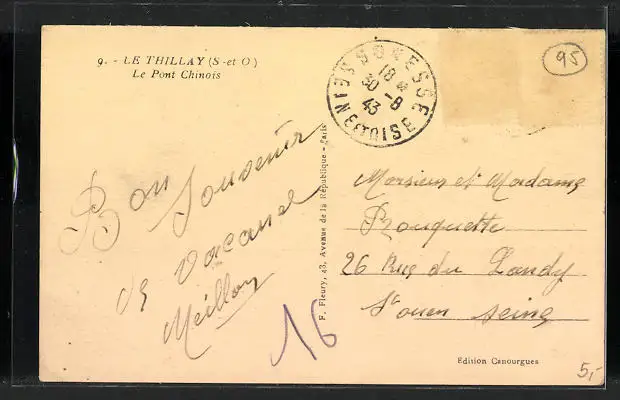 9. - LE THILLAY (S-et O)
Le Pont Chinois
GONESSE
18 H
30 -8
43
SEINE ET OISE
95
Bon Souvenir
de Vacance
Meillon
16
F. Fleury, 43, Avenue de la République - Paris
Monsieur et Madame
Prouquette
26 Rue du Landy
St ouen Seine
Edition Canourgues
5,-